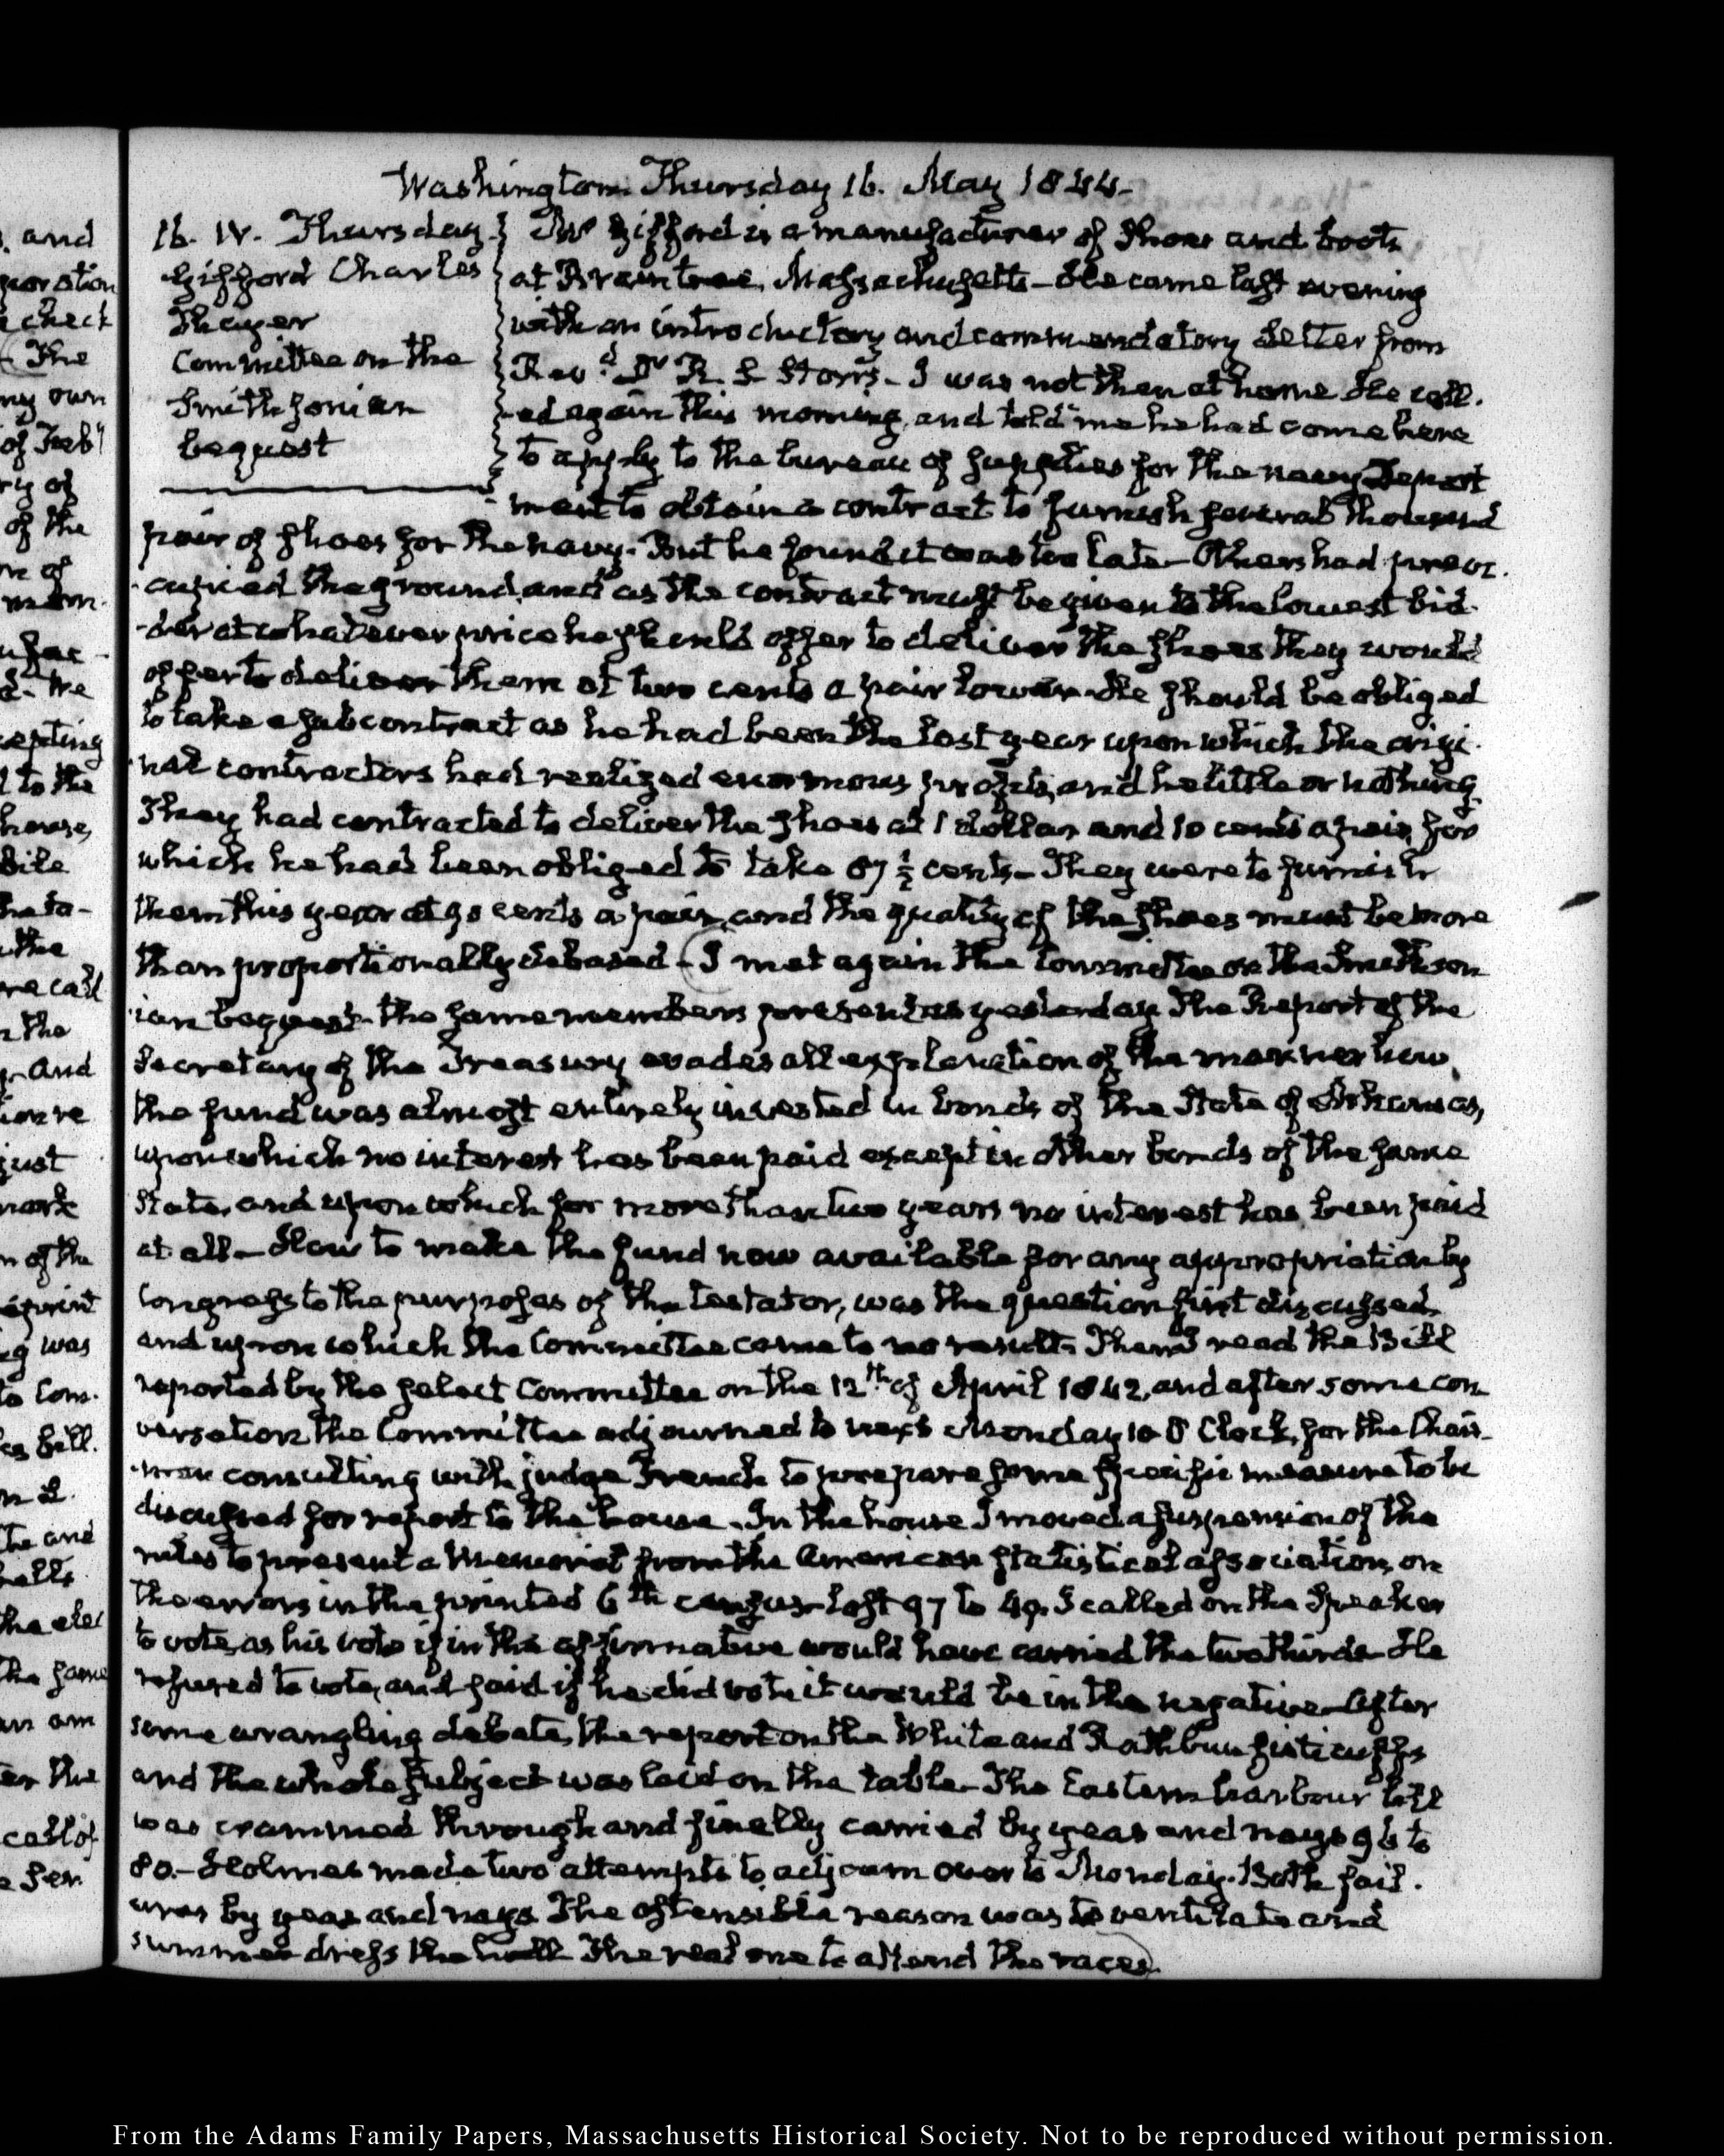 Washington Thursday 16. May 1844.
16. IV. Thursday
Gifford Charles
Thayer
Committee on the
Smithsonian
bequest
Mr Gifford is a manufacturer of Shoes and boots
at Braintree, Massachusetts – He came last evening
with an introductory and commendatory Letter from
Revd. Dr R. S. Storrs – I was not then at home. He call-
-ed again this morning, and told me he had come here
to apply to the bureau of supplies for the navy Depart
-ment to obtain a contract to furnish several thousand
pair of shoes for the navy. But he found it was too late – Others had preoc-
-cupied the ground, and as the contract must be given to the lowest bid-
-der at whatever price he should offer to deliver the shoes they would
offer to deliver them at two cents a pair lower. He should be obliged
to take a subcontract as he had been the last year upon which the origi-
-nal contractors had realized enormous profits, and he little or nothing.
They had contracted to deliver the shoes at 1 dollar and 10 cents a pair, for
which he had been obliged to take 87 ½ cents – They were to furnish
them this year at 90 cents a pair, and the quality of the shoes must be more
than proportionally debased – I met again the Committee on the Smithson
-ian bequest – the same members present as yesterday. The Report of the
Secretary of the Treasury evades all explanation of the manner how,
the fund was almost entirely invested in bonds of the State of Arkansas,
upon which no interest has been paid except in other bonds of the same
State, and upon which for more than two years no interest has been paid
at all – How to make the fund now available for any appropriation by
Congress to the purposes of the testator, was the question first discussed,
and upon which the Committee came to no result. Then I read the Bill
reported by the select Committee on the 12th of April 1842, and after some con-
versation the Committee adjourned to next Monday 10 O'Clock, for the Chair-
-man consulting with judge French to prepare some specific measure to be
discussed for report to the house – In the house I moved a suspension of the
rules to present a Memorial from the American statistical association, on
the errors in the printed 6th census – lost 97 to 49. I called on the Speaker
to vote, as his vote if in the affirmative would have carried the two thirds – He
refused to vote, and said if he did vote it would be in the negative – After
some wrangling debate, the report on the White and Rathbun fisticuffs
and the whole subject was laid on the table – The Eastern harbour bill
was crammed through and finally carried by yeas and nays 96 to
80. – Holmes made two attempts to adjourn over to Monday. Both fail-
ures by yeas and nays. The ostensible reason was to ventilate and
summer dress the hall. The real one to attend the races.
. and
poration
check
The
my own
of Feb'y
ry of
of the
me of
mem-
d- the
cepting
l to the
house,
bile
the
re call
n the
and
just
mark
n of the
was
to Com-
ca bill.
the and
halls
the same
an am
er the
call of
From the Adams Family Papers, Massachusetts Historical Society. Not to be reproduced without permission.